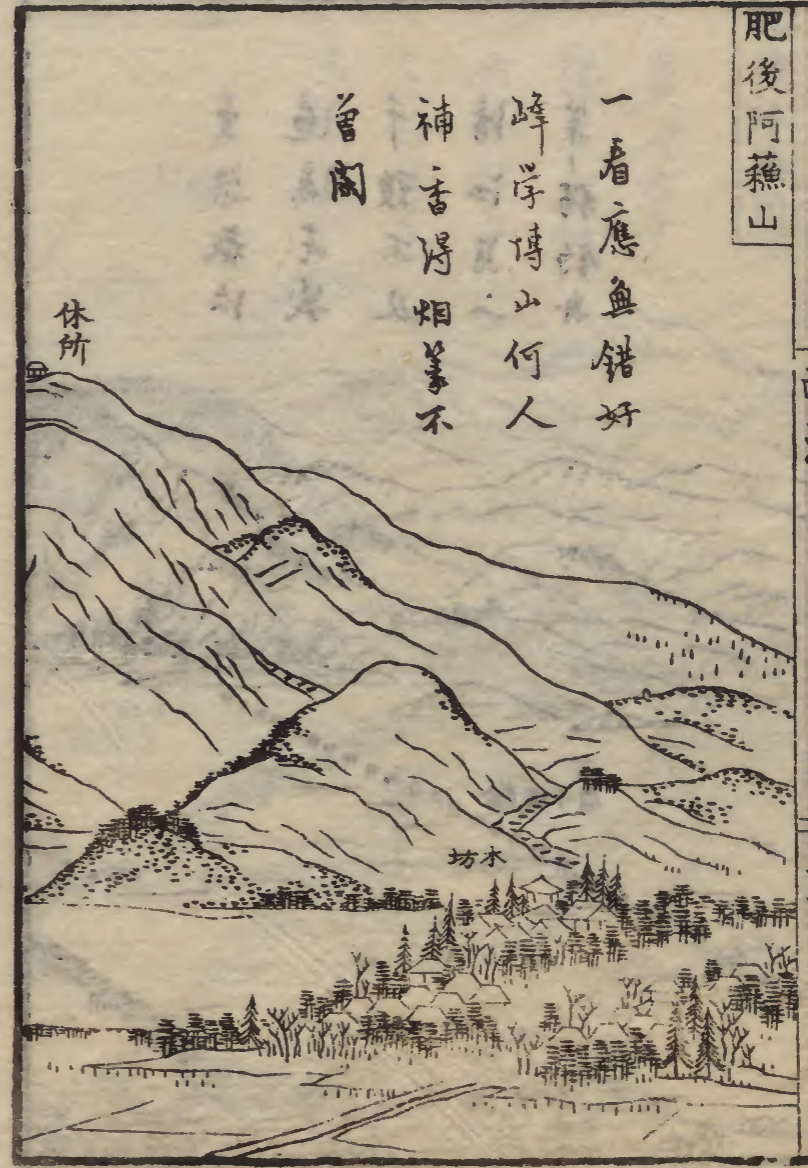 肥後阿蘓山
一看應無錯好
峰学博山何人
補香得烟篆不
曽聞
休所
坊本